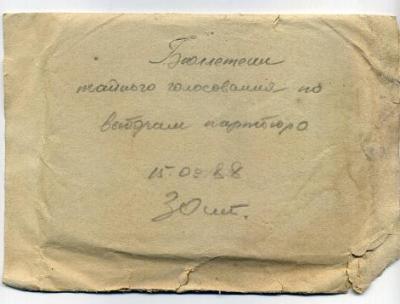 Бюлетени
тайного голосования по
выборам партбюро
15.03.88
30 шт.